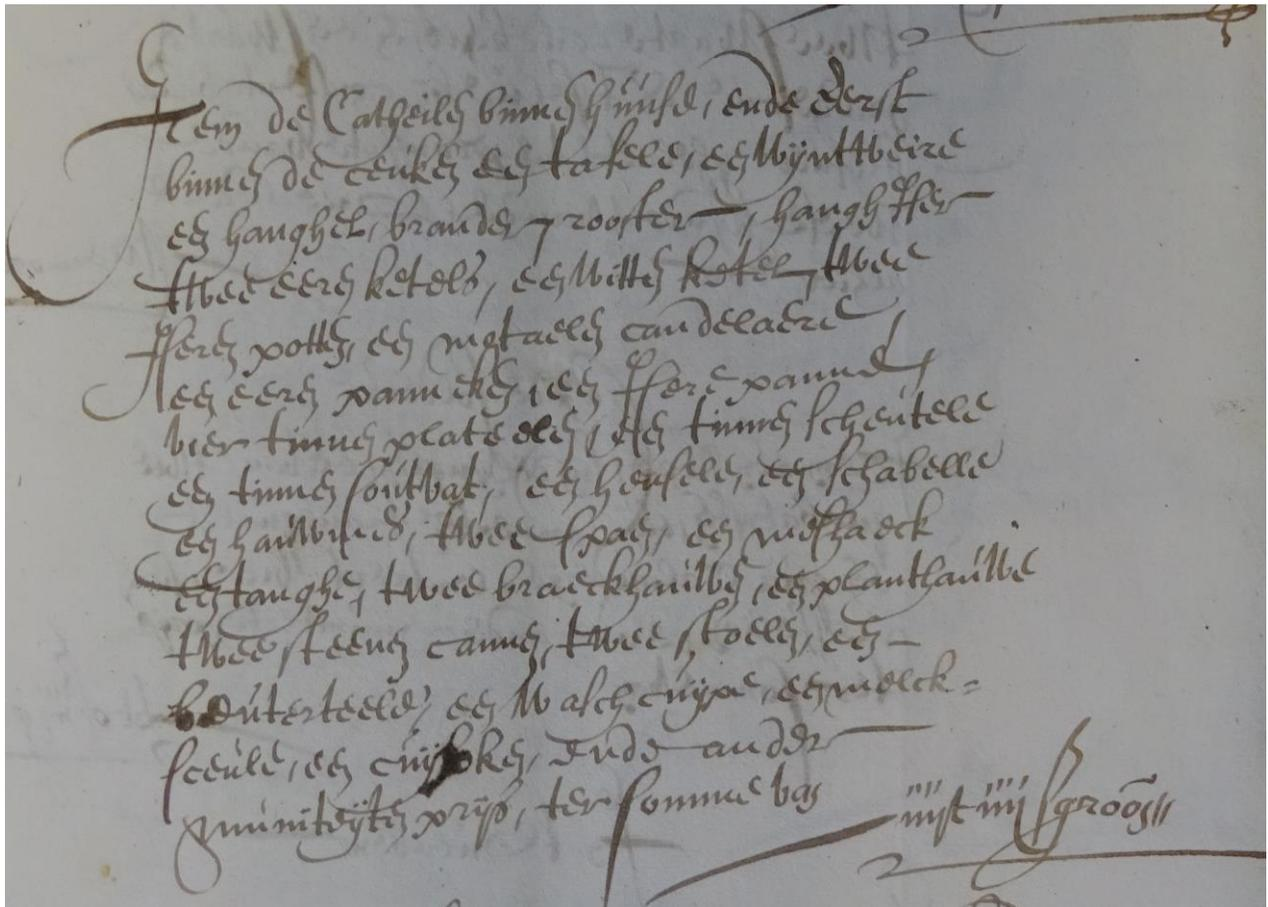 Item de Catheilen binnen huuse, ende eerst
binnen de ceuken een tafele, een wijntweire
een hanghel, brander, rooster, hangh ijser
twee eeren ketels, een witten ketel, twee
ijseren potten, een metaelen candelaere
een eeren panneken, een ijsere panne
vier tinnen plateelen, een tinnen scheutele
een tinnen soutvat, een heusele, een schabelle
een twee een
een tanghe, twee braeckhauwen, een planthauwe
twee steenen cannen, twee stoelen, een
beuterteele, een waschcuype, een melck=
sceule, een cuypken, ende ander
prijs, ter somme van iiij £ iiij s groo~